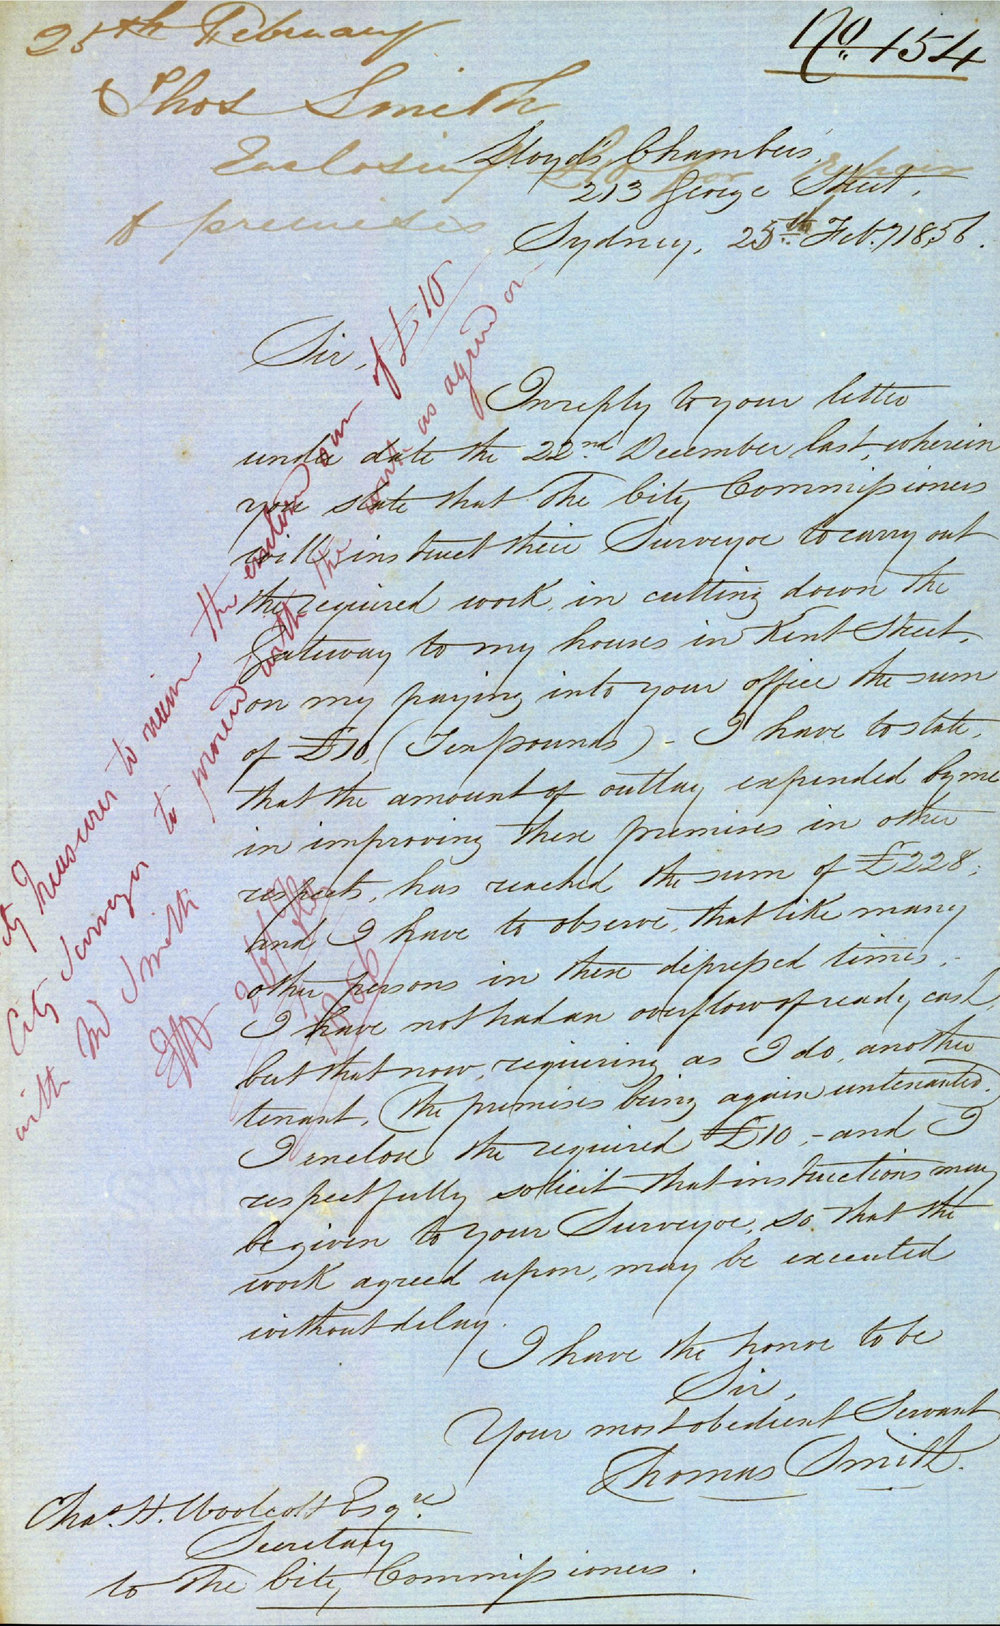 25th February
No. 154
Thos Smith
Enclosing £10 for
to premises
Lloyd's Chambers,
213 George Street,
Sydney, 25th Feb.y 1856.
Sir,
In reply to your letter
under date the 22nd December last, wherein
you state that the City Commissioners
will instruct their Surveyor to carry out
the required work, in cutting down the
Gateway to my houses in Kent Street,
on my paying into your office the sum
of £10, (Ten pounds) - I have to state,
that the amount of outlay expended by me
in improving these premises in other
respects, has reached the sum of £228;
and I have to observe, that like many
other persons in these depressed times, -
I have not had an overflow of ready cash,
but that now, requiring as I do, another
tenant, (the premises being again untenanted)
I enclose the required £10, - and I
respectfully solicit that instructions may
be given to your Surveyor, so that the
work agreed upon, may be executed
without delay.
I have the honor to be
Sir,
Your most obedient Servant
Thomas Smith.
Chas. H. Woolcott Esqre
Secretary
to the City Commissioners.
City Treasurer to receive the enclosed sum of £10
City Surveyor to proceed with the work as agreed on
with Mr Smith
26/
1856